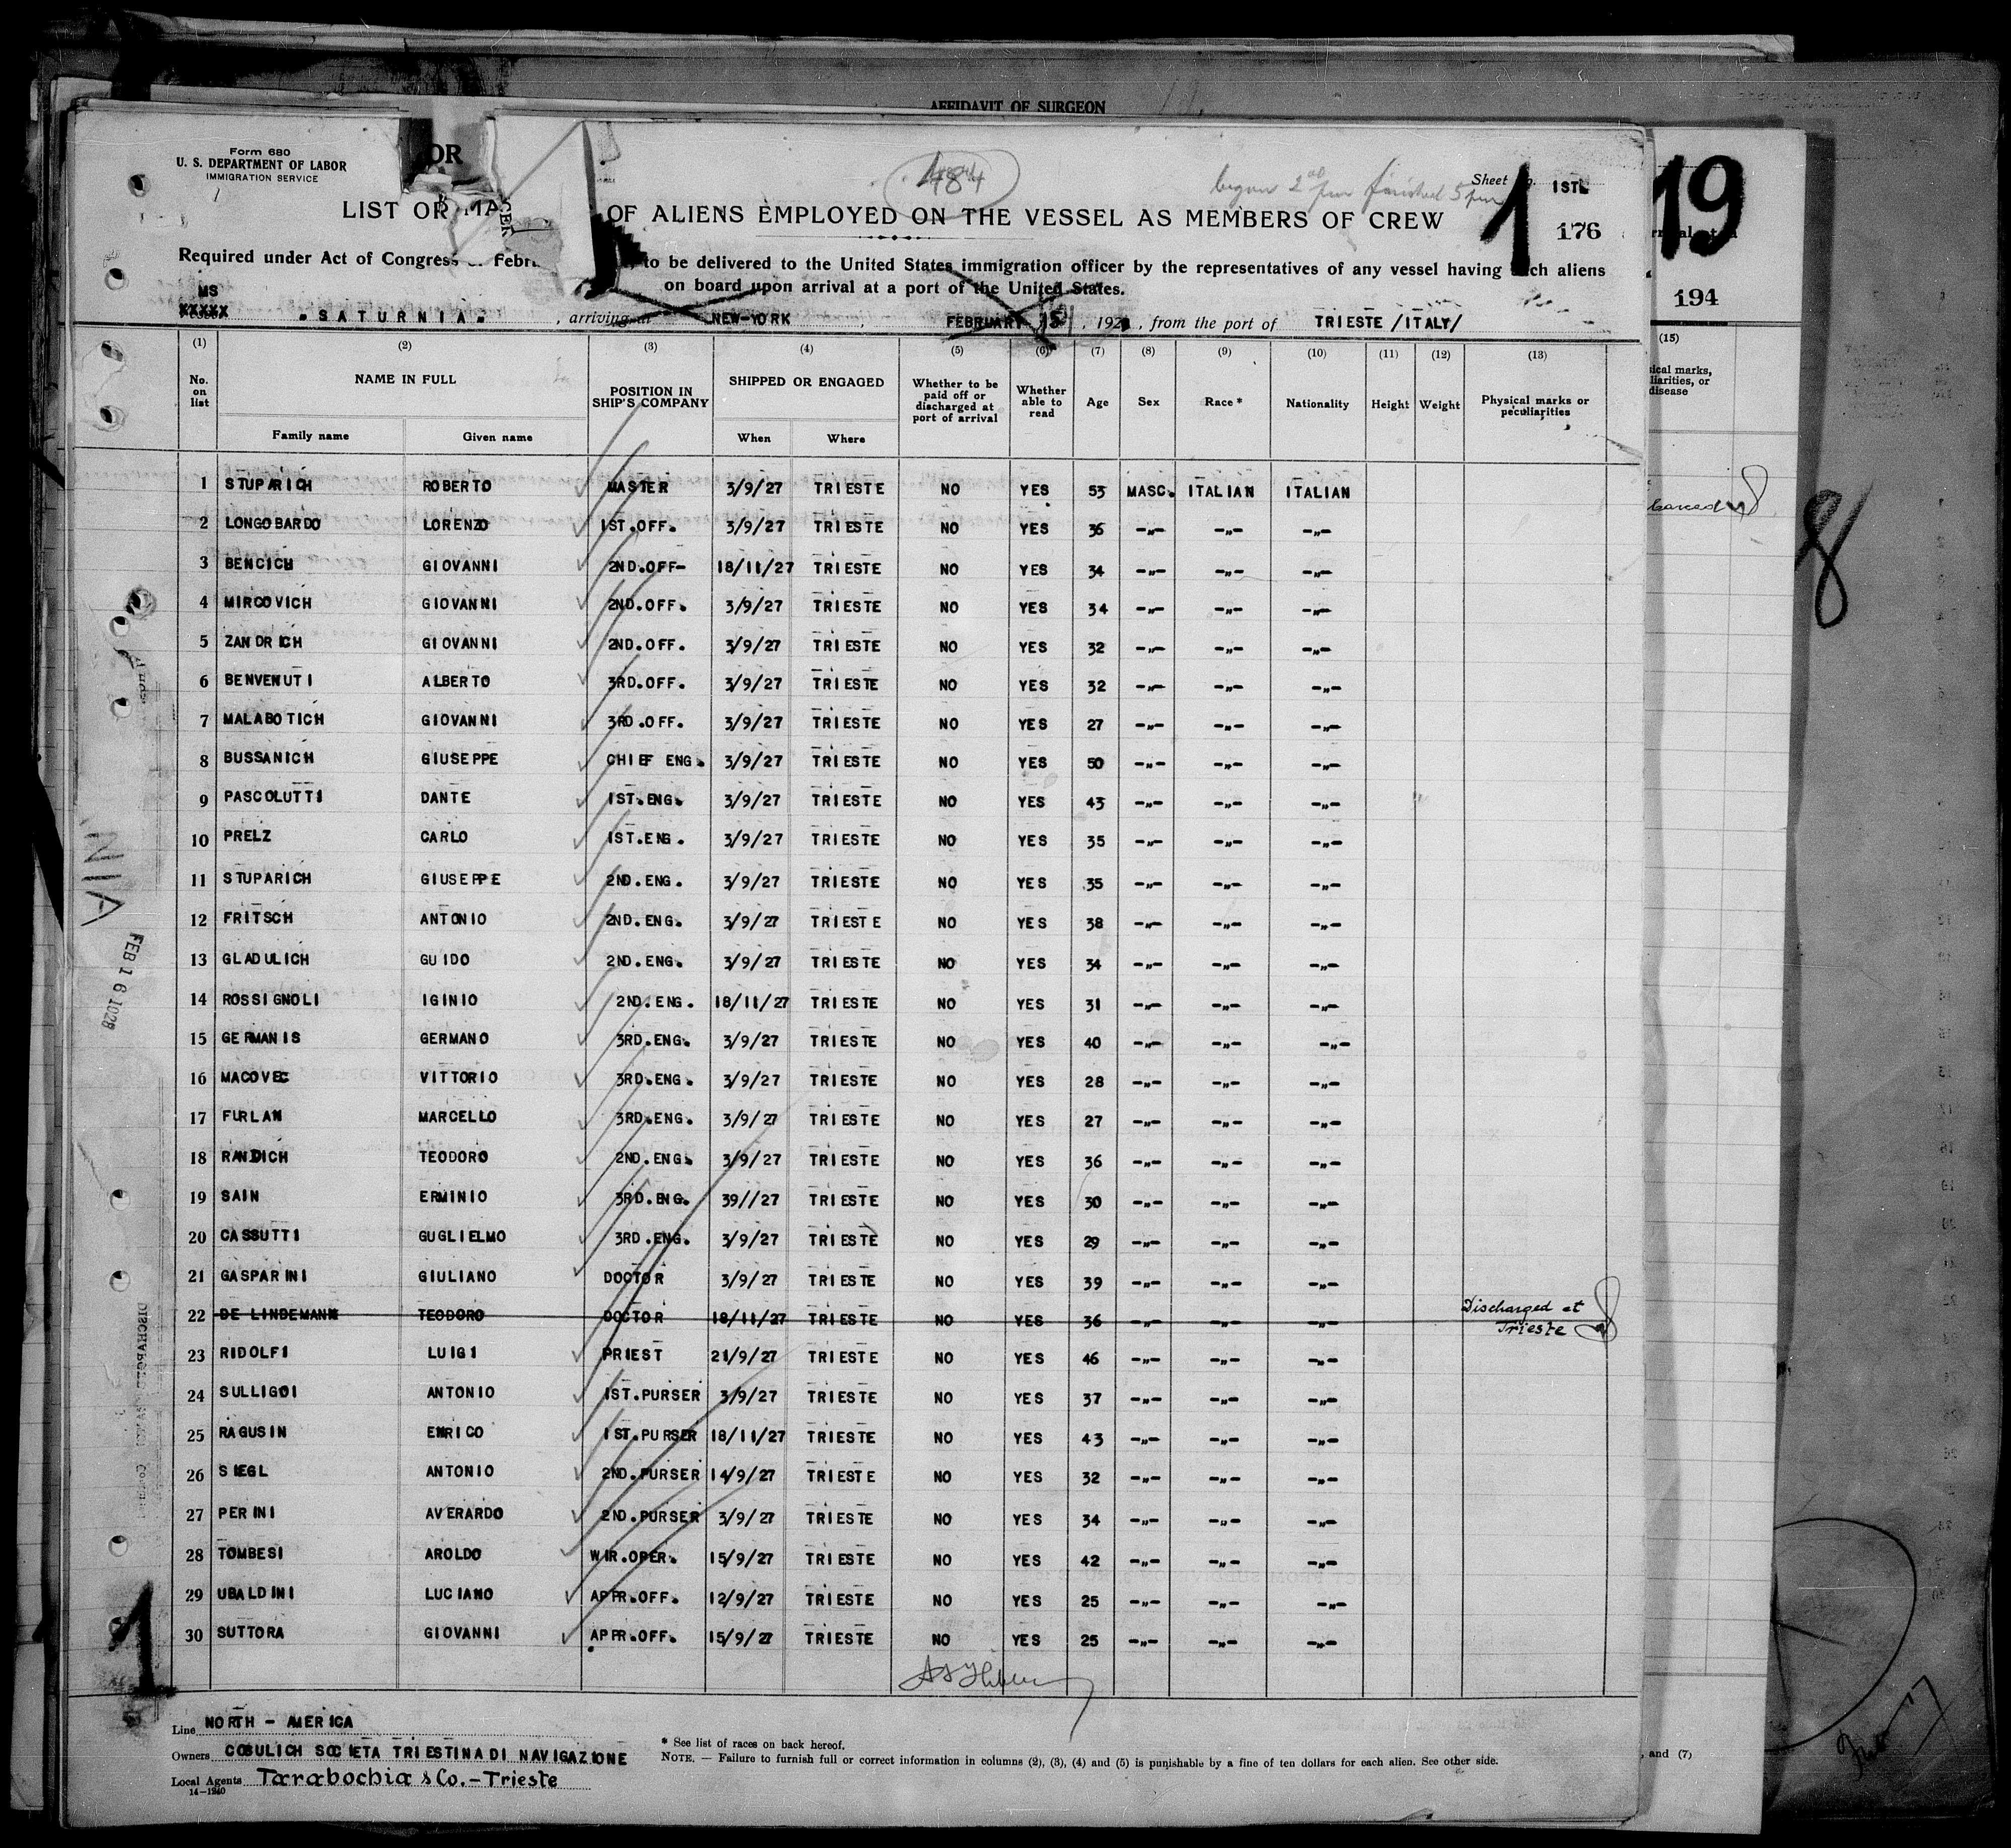 AFFIDAVIT OF SURGEON
Form 680
U. S. DEPARTMENT OF LABOR
IMMIGRATION SERVICE
OR
484
began 2 pm finished 5 pm
Sheet No. 1STL
1
176
19
194
LIST OR MA OF ALIENS EMPLOYED ON THE VESSEL AS MEMBERS OF CREW
Required under Act of Congress Febru to be delivered to the United States immigration officer by the representatives of any vessel having such aliens
on board upon arrival at a port of the United States.
MS
XXXXX "SATURNIA", arriving at NEW-YORK, FEBRUARY 15, 192, from the port of TRIESTE /ITALY/
(1) (2) (3) (4) (5) (6) (7) (8) (9) (10) (11) (12) (13) (15)
No. on list NAME IN FULL POSITION IN SHIP'S COMPANY SHIPPED OR ENGAGED Whether to be paid off or discharged at port of arrival Whether able to read Age Sex Race * Nationality Height Weight Physical marks or peculiarities
Family name Given name When Where
1 STUPARICH ROBERTO MASTER 3/9/27 TRIESTE NO YES 53 MASC. ITALIAN ITALIAN
2 LONGOBARDO LORENZO 1ST.OFF. 3/9/27 TRIESTE NO YES 36 -"- -"- -"-
3 BENCICH GIOVANNI 2ND.OFF- 18/11/27 TRIESTE NO YES 34 -"- -"- -"-
4 MIRCOVICH GIOVANNI 2ND.OFF. 3/9/27 TRIESTE NO YES 34 -"- -"- -"-
5 ZANDRICH GIOVANNI 2ND.OFF. 3/9/27 TRIESTE NO YES 32 -"- -"- -"-
6 BENVENUTI ALBERTO 3RD.OFF. 3/9/27 TRIESTE NO YES 32 -"- -"- -"-
7 MALABOTICH GIOVANNI 3RD.OFF. 3/9/27 TRIESTE NO YES 27 -"- -"- -"-
8 BUSSANICH GIUSEPPE CHIEF ENG. 3/9/27 TRIESTE NO YES 50 -"- -"- -"-
9 PASCOLUTTI DANTE 1ST.ENG. 3/9/27 TRIESTE NO YES 43 -"- -"- -"-
10 PRELZ CARLO 1ST.ENG. 3/9/27 TRIESTE NO YES 35 -"- -"- -"-
11 STUPARICH GIUSEPPE 2ND.ENG. 3/9/27 TRIESTE NO YES 35 -"- -"- -"-
12 FRITSCH ANTONIO 2ND.ENG. 3/9/27 TRIESTE NO YES 38 -"- -"- -"-
13 GLADULICH GUIDO 2ND.ENG. 3/9/27 TRIESTE NO YES 34 -"- -"- -"-
14 ROSSIGNOLI IGINIO 2ND.ENG. 18/11/27 TRIESTE NO YES 31 -"- -"- -"-
15 GERMANIS GERMANO 3RD.ENG. 3/9/27 TRIESTE NO YES 40 -"- -"- -"-
16 MACOVEC VITTORIO 3RD.ENG. 3/9/27 TRIESTE NO YES 28 -"- -"- -"-
17 FURLAN MARCELLO 3RD.ENG. 3/9/27 TRIESTE NO YES 27 -"- -"- -"-
18 RANDICH TEODORO 2ND.ENG. 3/9/27 TRIESTE NO YES 36 -"- -"- -"-
19 SAIN ERMINIO 3RD.ENG. 39//27 TRIESTE NO YES 30 -"- -"- -"-
20 CASSUTTI GUGLIELMO 3RD.ENG. 3/9/27 TRIESTE NO YES 29 -"- -"- -"-
21 GASPARINI GIULIANO DOCTOR 3/9/27 TRIESTE NO YES 39 -"- -"- -"-
22 DE LINDEMANN TEODORO DOCTOR 18/11/27 TRIESTE NO YES 36 -"- -"- -"- Discharged at Trieste
23 RIDOLFI LUIGI PRIEST 21/9/27 TRIESTE NO YES 46 -"- -"- -"-
24 SULLIGOI ANTONIO 1ST.PURSER 3/9/27 TRIESTE NO YES 37 -"- -"- -"-
25 RAGUSIN ENRICO 1ST.PURSER 18/11/27 TRIESTE NO YES 43 -"- -"- -"-
26 SIEGL ANTONIO 2ND.PURSER 14/9/27 TRIESTE NO YES 32 -"- -"- -"-
27 PERINI AVERARDO 2ND.PURSER 3/9/27 TRIESTE NO YES 34 -"- -"- -"-
28 TOMBESI AROLDO WIR.OPER. 15/9/27 TRIESTE NO YES 42 -"- -"- -"-
29 UBALDINI LUCIANO APPR.OFF. 12/9/27 TRIESTE NO YES 25 -"- -"- -"-
30 SUTTORA GIOVANNI APPR.OFF. 15/9/27 TRIESTE NO YES 25 -"- -"- -"-
NIA
FEB 16 1928
8
1
Line NORTH - AMERICA
Owners COSULICH SOCIETA TRIESTINA DI NAVIGAZIONE
Local Agents Tarabochia & Co. - Trieste
14-1240
* See list of races on back hereof.
NOTE. — Failure to furnish full or correct information in columns (2), (3), (4) and (5) is punishable by a fine of ten dollars for each alien. See other side.
, and (7)